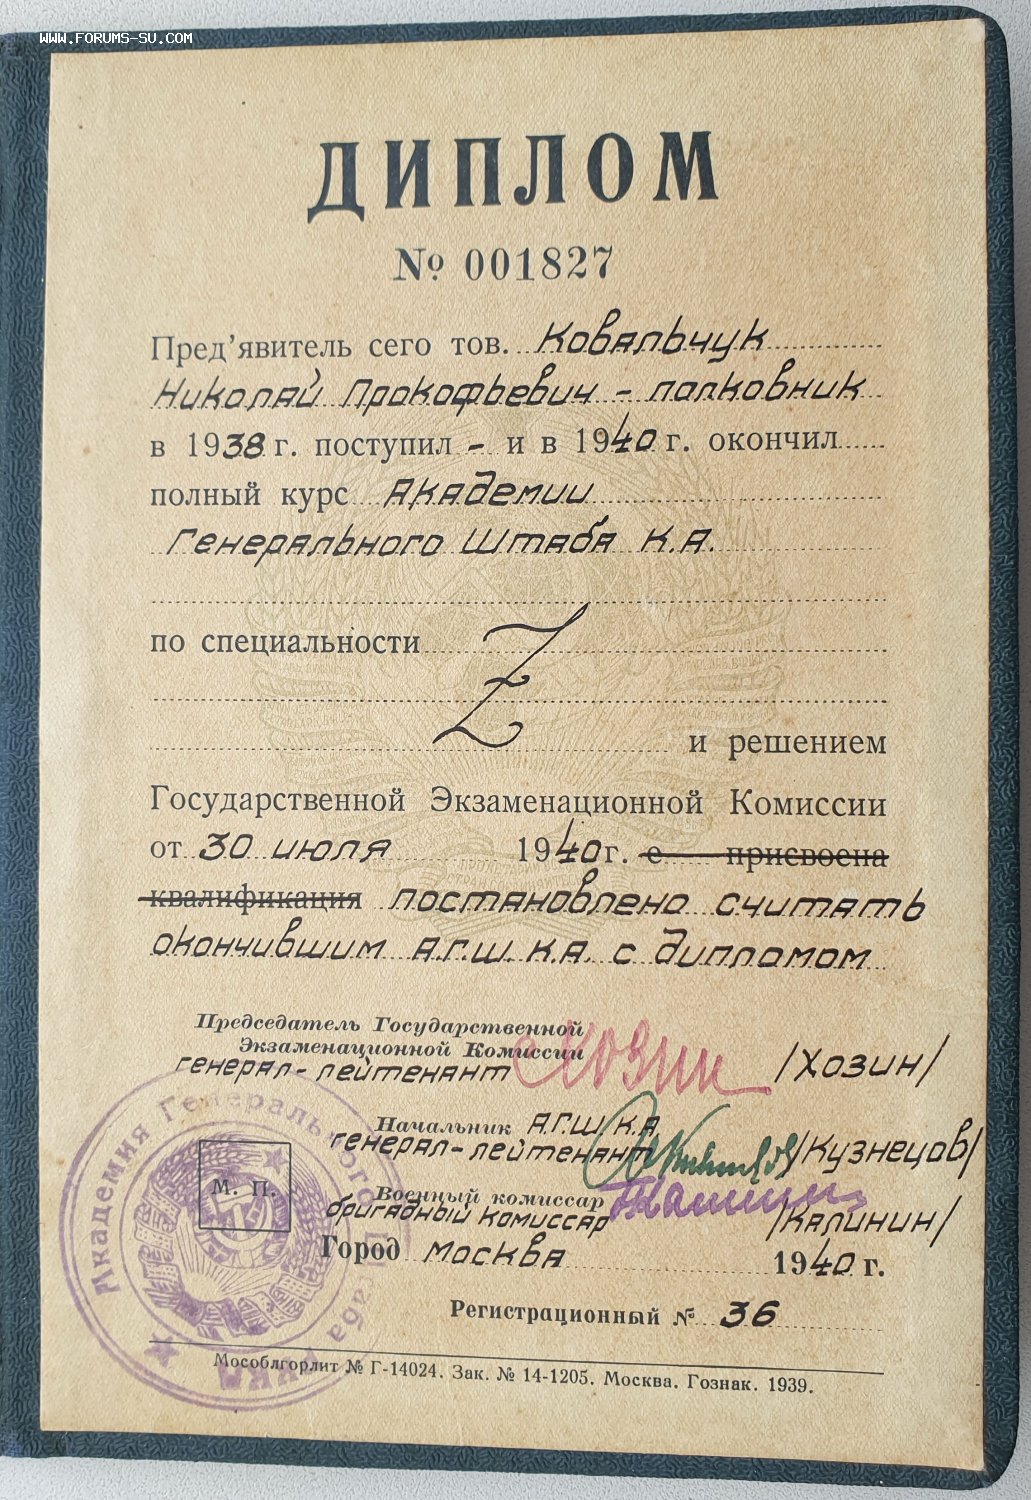 WWW.FORUMS-SU.COM
ДИПЛОМ
№ 001827
Пред'явитель сего тов. Ковальчук
Николай Прокофьевич - полковник
в 1938 г. поступил - и в 1940 г. окончил
полный курс Академии
Генерального Штаба К.А.
по специальности Z
и решением
Государственной Экзаменационной Комиссии
от 30 июля 1940 г. е присвоена
квалификация постановлено считать
окончившим А.Г.Ш. К.А. с дипломом
Председатель Государственной
Экзаменационной Комиссии
генерал-лейтенант Хозин /Хозин/
Начальник А.Г.Ш. К.А.
генерал-лейтенант /Кузнецов/
Военный комиссар
бригадный комиссар Калинин /Калинин/
М. П.
Город Москва 1940 г.
Регистрационный № 36
Академия Генерального Штаба РККА
Мособлгорлит № Г-14024. Зак. № 14-1205. Москва. Гознак. 1939.